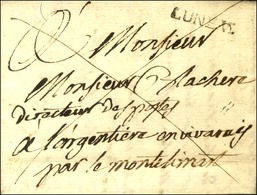 LUNEL
Monsieur
Monsieur Rachere
directeur des postes
a L'argentière en vivarais
par le montelimar